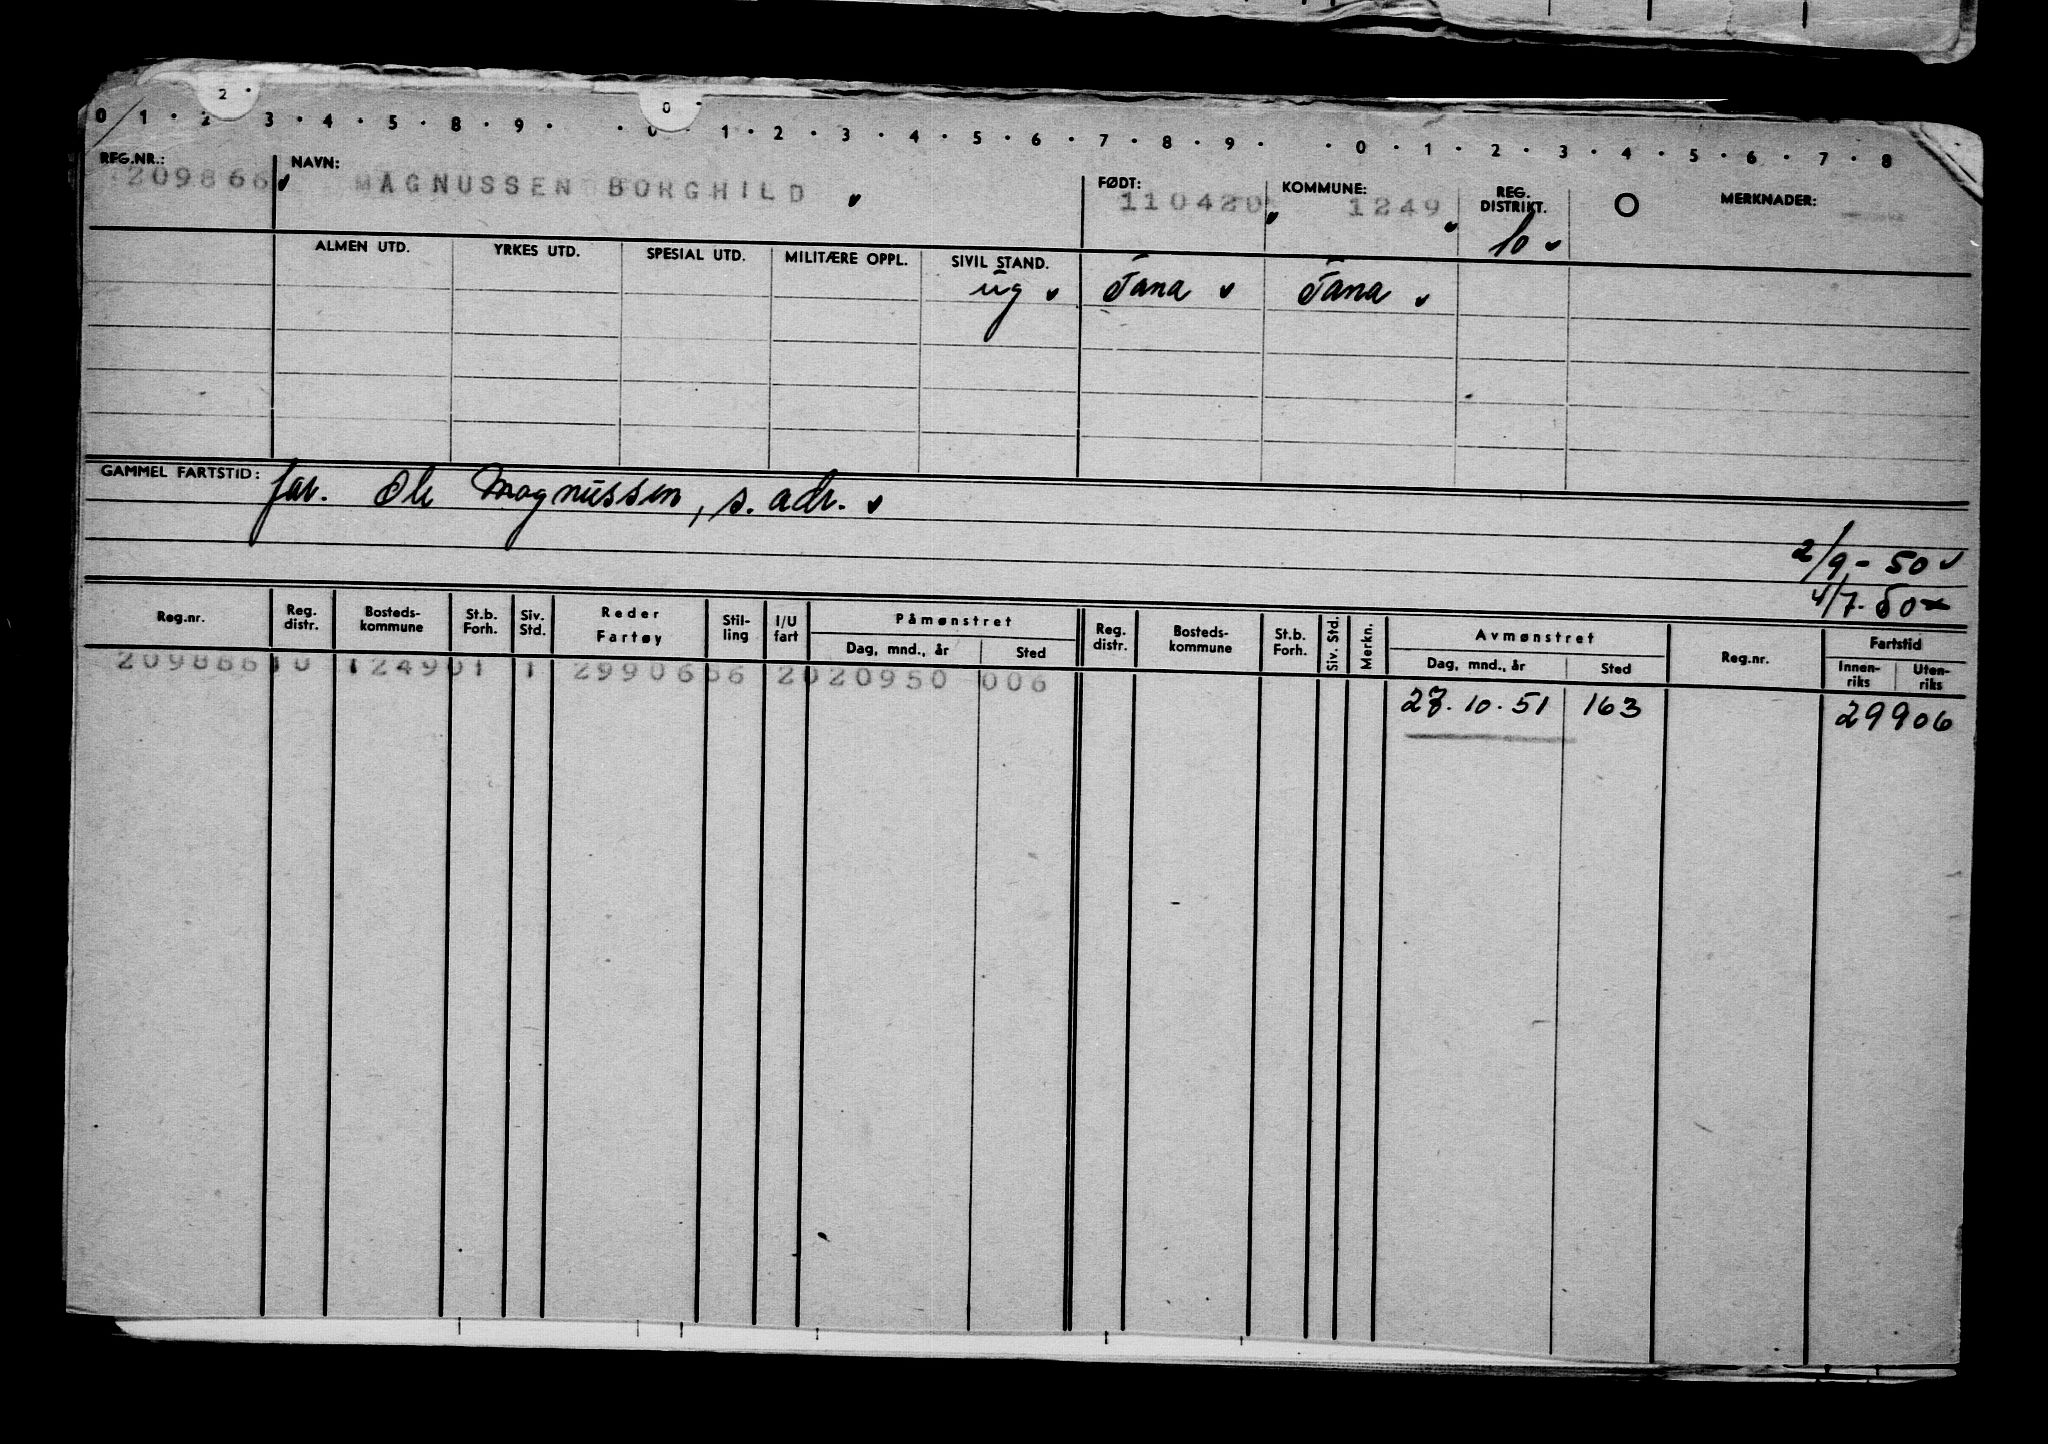 2 0
0 1 2 3 4 5 8 9 0 1 2 3 4 5 6 7 8 9 0 1 2 3 4 5 6 7 8
REG.NR.: NAVN: FØDT: KOMMUNE: REG. DISTRIKT. O MERKNADER:
209866 MAGNUSSEN BORGHILD 110420 1249 10
ALMEN UTD. YRKES UTD. SPESIAL UTD. MILITÆRE OPPL. SIVIL STAND.
ug Fana Fana
GAMMEL FARTSTID: far. Ole Magnussen, s. adr.
2/9-50
4/7-50
Reg.nr. Reg. distr. Bosteds-kommune St.b. Forh. Siv. Std. Reder Fartøy Stil-ling I/U fart Påmønstret Reg. distr. Bosteds-kommune St.b. Forh. Siv. Std. Merkn. Avmønstret Reg.nr. Fartstid
Dag, mnd., år Sted Dag, mnd., år Sted Innen-riks Uten-riks
209866 10 1249 01 1 29906 66 2 020950 006
27.10.51 163 29906